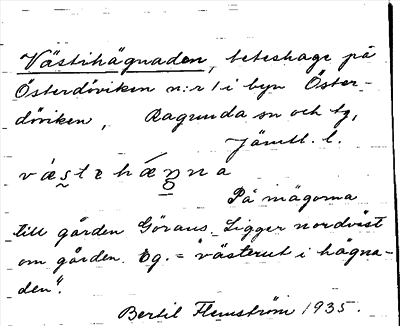 Västihägnaden, beteshage på
Österdöviken n:r 1 i byn Öster-
döviken, Ragunda sn och tg,
Jämtl. l.
väste hägna
På ägorna
till gården Görans. Ligger nordväst
om gården. Eg. = "västerut i hägna-
den".
Bertil Flemström 1935.